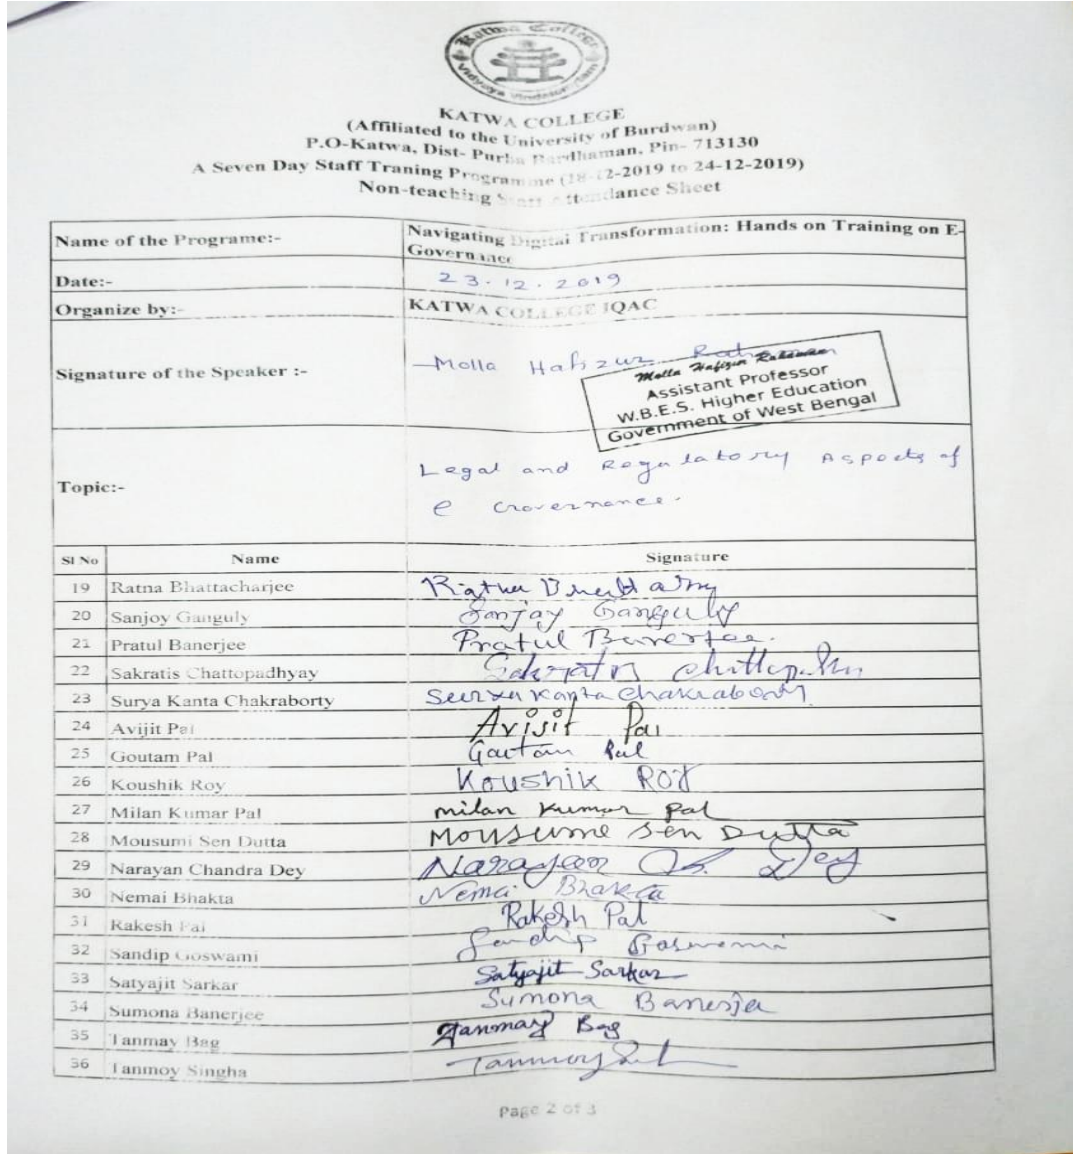 Katwa College
KATWA COLLEGE
(Affiliated to the University of Burdwan)
P.O-Katwa, Dist- Purba Bardhaman, Pin- 713130
A Seven Day Staff Traning Programme (18-12-2019 to 24-12-2019)
Non-teaching Staff Attendance Sheet
Name of the Programe:- Navigating Digital Transformation: Hands on Training on E-
Governance
Date:- 23.12.2019
Organize by:- KATWA COLLEGE IQAC
Signature of the Speaker :- Molla Hafizur Rahaman
Molla Hafizur Rahaman
Assistant Professor
W.B.E.S. Higher Education
Government of West Bengal
Topic:- Legal and Regulatory Aspects of
e Governance.
Sl No Name Signature
19 Ratna Bhattacharjee Ratna
20 Sanjoy Ganguly Sanjay Ganguly
21 Pratul Banerjee Pratul Banerjee.
22 Sakratis Chattopadhyay Sakratis
23 Surya Kanta Chakraborty Surya Kanta Chakraborty
24 Avijit Pal Avijit Pal
25 Goutam Pal Goutam Pal
26 Koushik Roy Koushik Roy
27 Milan Kumar Pal milan Kumar pal
28 Mousumi Sen Dutta Mousume Sen Dutta
29 Narayan Chandra Dey Narayan Ch. Dey
30 Nemai Bhakta Nemai Bhakta
31 Rakesh Pal Rakesh Pal
32 Sandip Goswami Sandip Goswami
33 Satyajit Sarkar Satyajit Sarkar
34 Sumona Banerjee Sumona Banerjee
35 Tanmay Bag Tanmay Bag
36 Tanmoy Singha Tanmoy
Page 2 of 3